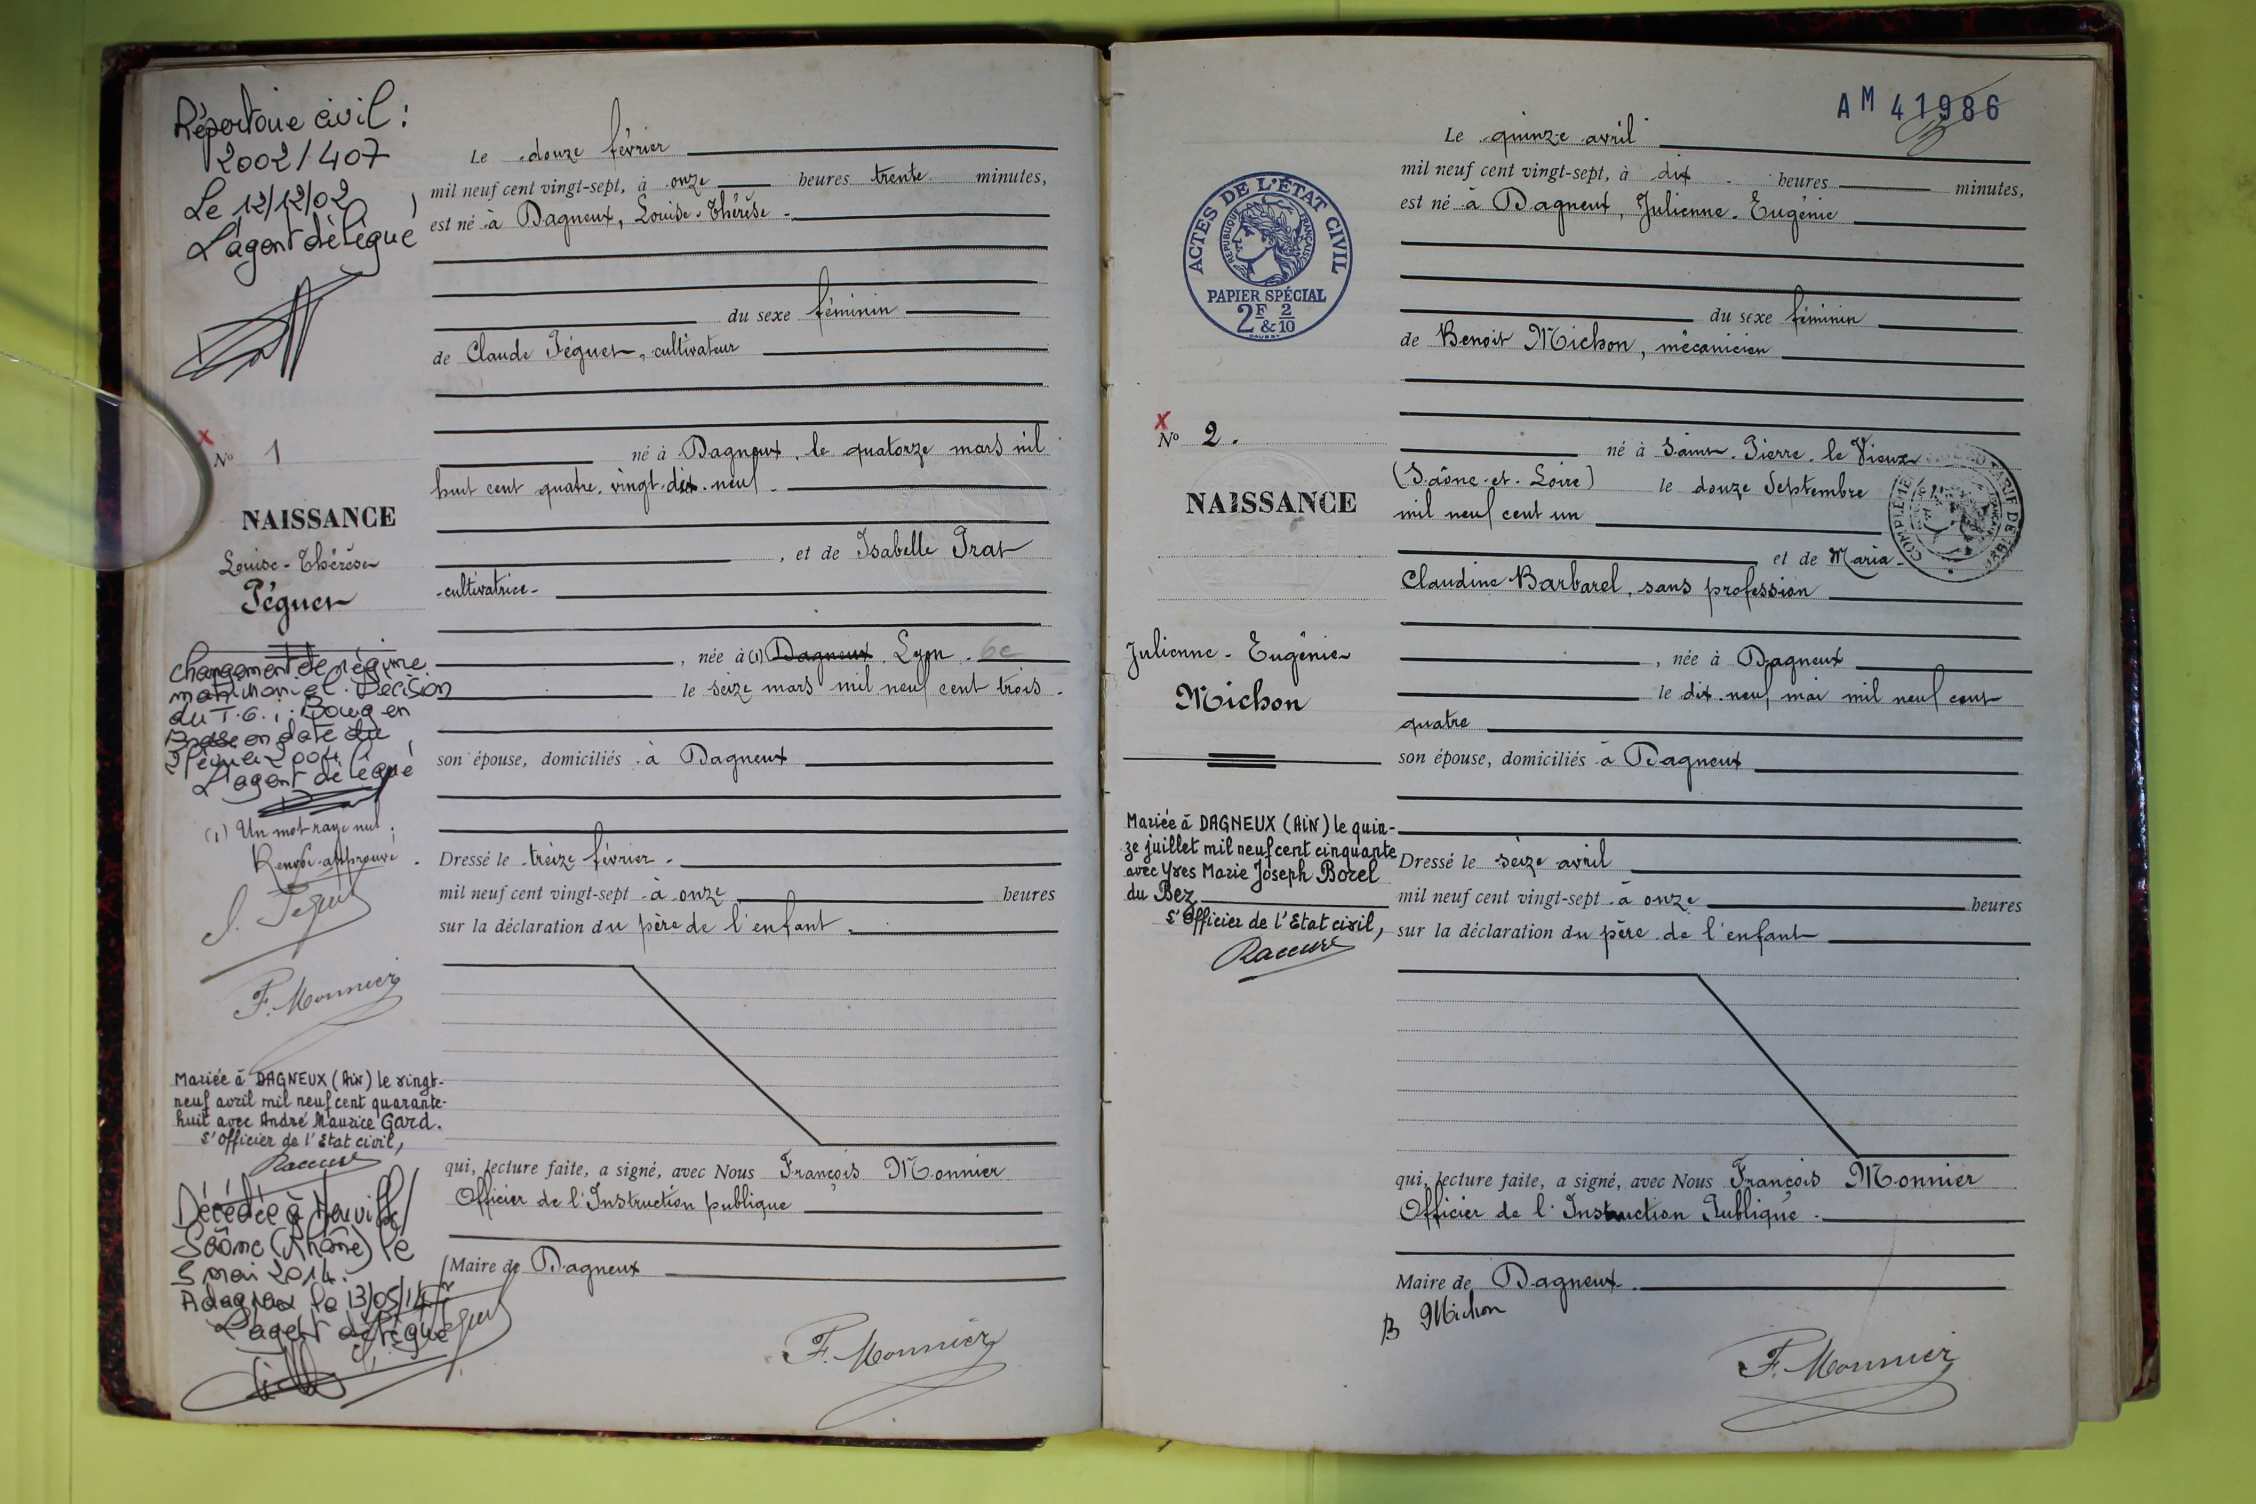 Répertoire civil :
2002/407
Le 12/12/02,
L'agent délégué
Le douze février
mil neuf cent vingt-sept, à onze heures trente minutes,
est né à Dagneux, Louise-Thérèse
du sexe féminin
de Claude Péguet, cultivateur
né à Dagneux, le quatorze mars mil
huit cent quatre-vingt-dix-neuf
, et de Isabelle Prat
cultivatrice
, née à (1) Dagneux Lyon 6e
le seize mars mil neuf cent trois
son épouse, domiciliés à Dagneux
Dressé le treize février
mil neuf cent vingt-sept à onze heures
sur la déclaration du père de l'enfant
qui, lecture faite, a signé, avec Nous François Monnier
Officier de l'Instruction publique
Maire de Dagneux
F. Monnier
No 1
NAISSANCE
Louise-Thérèse
Péguet
Changement de régime
matrimonial. Décision
du T.G.I. Bourg en
Bresse en date du
février 2004.
L'agent délégué
(1) Un mot rayé nul.
Renvoi approuvé.
Péguet
F. Monnier
Mariée à DAGNEUX (Ain) le vingt-
neuf avril mil neuf cent quarante-
huit avec André Maurice Gard.
L'Officier de l'Etat civil,
Décédée à Neuville/
Saône (Rhône) le
5 mai 2014.
A dagneux le 13/05/14
L'agent délégué
Péguet
AM 41986
ACTES DE L'ÉTAT CIVIL
RÉPUBLIQUE FRANÇAISE
PAPIER SPÉCIAL
2F & 2/10
Le quinze avril
mil neuf cent vingt-sept, à dix heures minutes,
est né à Dagneux, Julienne-Eugénie
du sexe féminin
de Benoit Michon, mécanicien
né à Saint-Pierre-le Vieux
(Saône-et-Loire) le douze Septembre
mil neuf cent un
et de Maria
Claudine Barbarel, sans profession
, née à Dagneux
le dix-neuf mai mil neuf cent
quatre
son épouse, domiciliés à Dagneux
Dressé le seize avril
mil neuf cent vingt-sept à onze heures
sur la déclaration du père de l'enfant
qui, lecture faite, a signé, avec Nous François Monnier
Officier de l'Instruction Publique
Maire de Dagneux
B Michon
F. Monnier
No 2.
NAISSANCE
Julienne-Eugénie
Michon
Mariée à DAGNEUX (AIN) le quin-
ze juillet mil neuf cent cinquante
avec Yves Marie Joseph Borel
du Bez
L'Officier de l'Etat civil,